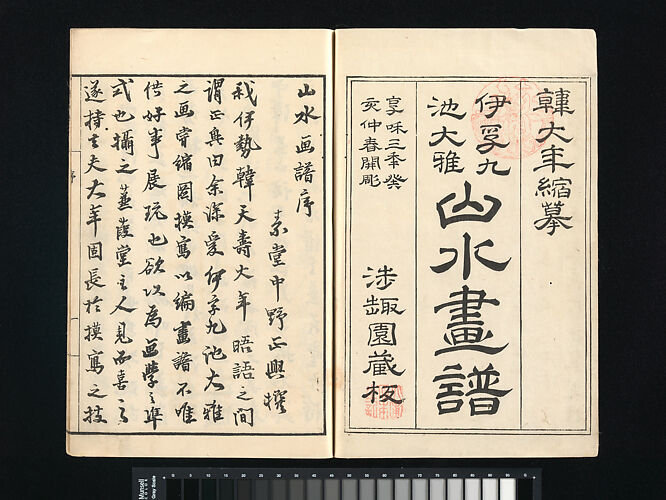 韓大年縮摹
伊孚九
池大雅
山水畫譜
享和三年癸
亥仲春開彫
渉趣園藏板
山水画譜序
素堂中野正興撰
我伊勢韓天壽大年晤語之間
謂正興曰余深愛伊孚九池大雅
之画嘗縮圖摸寫以編畫譜不唯
供好事展玩也欲以為画學之準
式也攝之蒹葭堂主人見而喜之
遂持去夫大年固長於摸寫之技
序